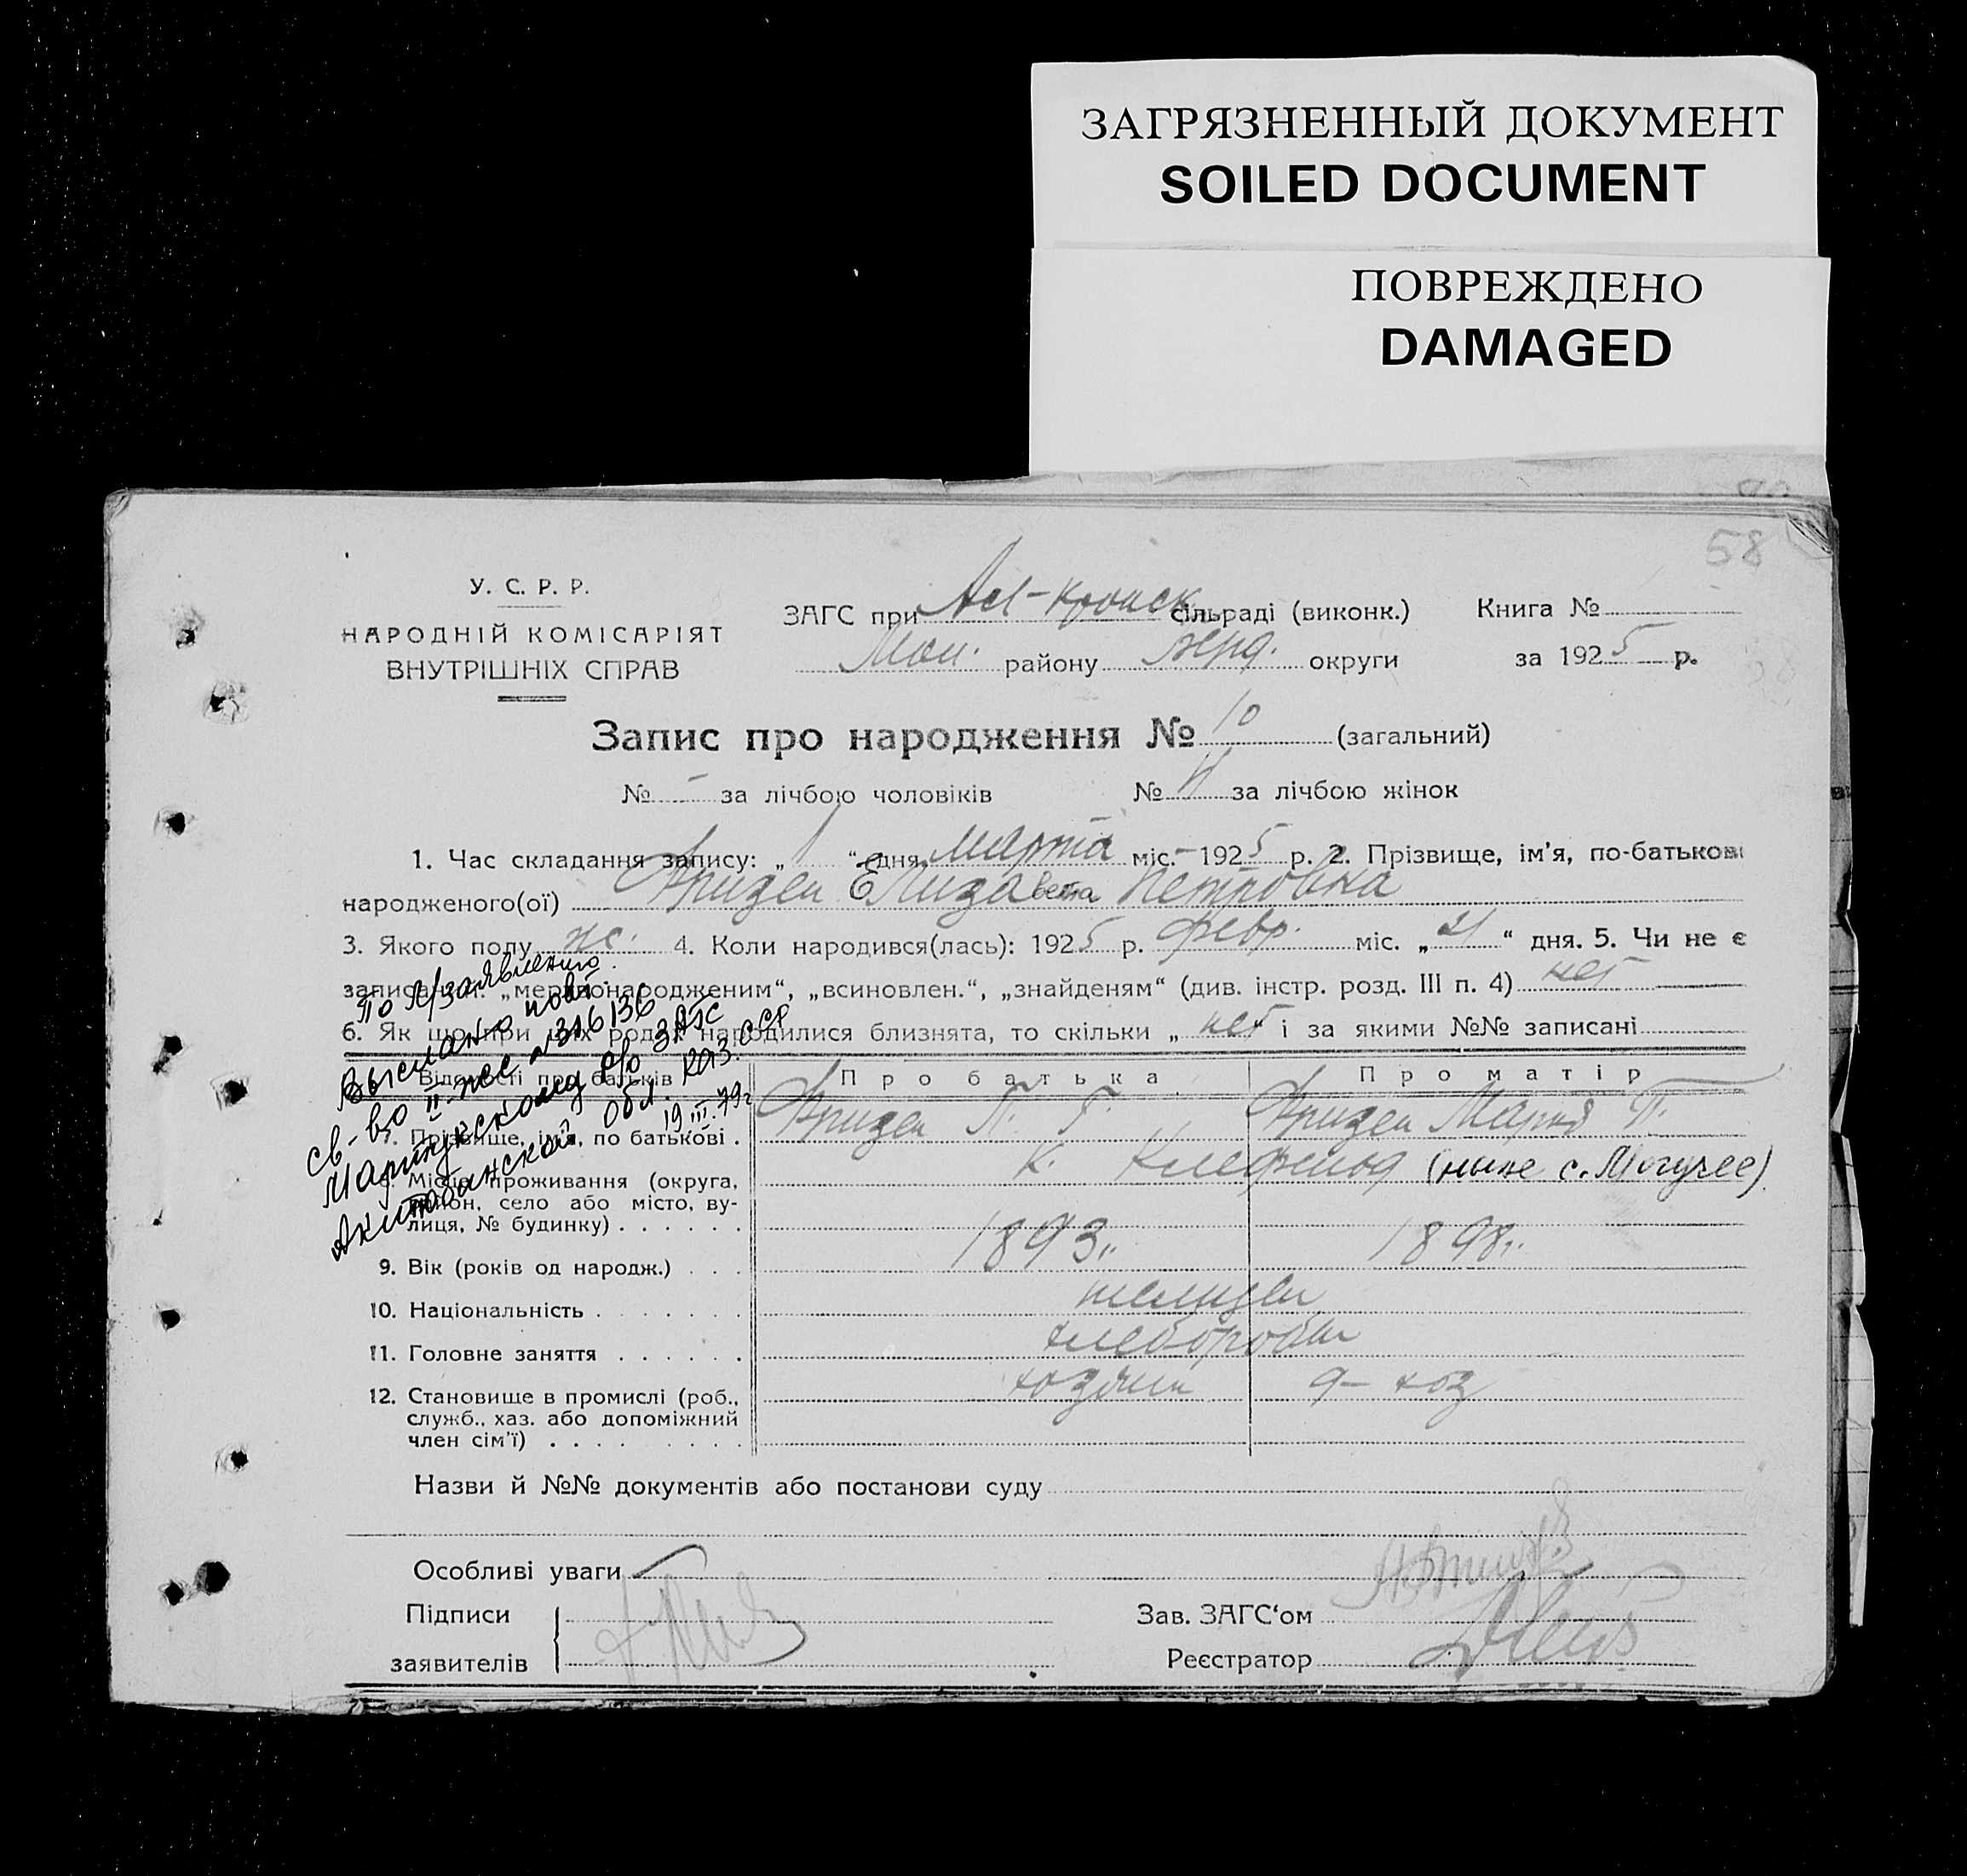 ЗАГРЯЗНЕННЫЙ ДОКУМЕНТ
SOILED DOCUMENT
ПОВРЕЖДЕНО
DAMAGED
58
У. С. Р. Р.
НАРОДНІЙ КОМІСАРІЯТ
ВНУТРІШНІХ СПРАВ
ЗАГС при сільраді (виконк.) Книга №
Мол. району округи за 1925 р.
Запис про народження № 10 (загальний)
№ - за лічбою чоловіків № за лічбою жінок
1. Час складання запису: „ 1 “ дня марта міс. 1925 р. 2. Прізвище, ім’я, по-батькові
народженого(ої) Фризен Елизавета Петровна
3. Якого полу ж. 4. Коли народився(лась): 1925 р. февр. міс. „ 21 “ дня. 5. Чи не є
записаний: „мертвонародженим“, „всиновлен.“, „знайденям“ (див. інстр. розд. III п. 4) нет
6. Як що при цих родах народилися близнята, то скільки „ нет “ і за якими №№ записані
По м/заявлению
выслано повт.
св-во II-ЖС №316136
Мартукскому р/о ЗАГС
Актюбинской обл. Каз.ССР
19 III.79г
Відомості про батьків Про батька Про матір
7. Прізвище, ім’я, по батькові . Фризен П. Г. Фризен Мария П.
8. Місце проживання (округа, к. Клефельд (ныне с. Могучее)
район, село або місто, ву-
лиця, № будинку)
9. Вік (років од народж.) 1893 1898
10. Національність немцы
11. Головне заняття хлеборобы
12. Становище в промислі (роб., хозяин
служб., хаз. або допоміжний
член сім’ї)
Назви й №№ документів або постанови суду
Особливі уваги
Підписи Зав. ЗАГС‘ом
заявителів Реєстратор